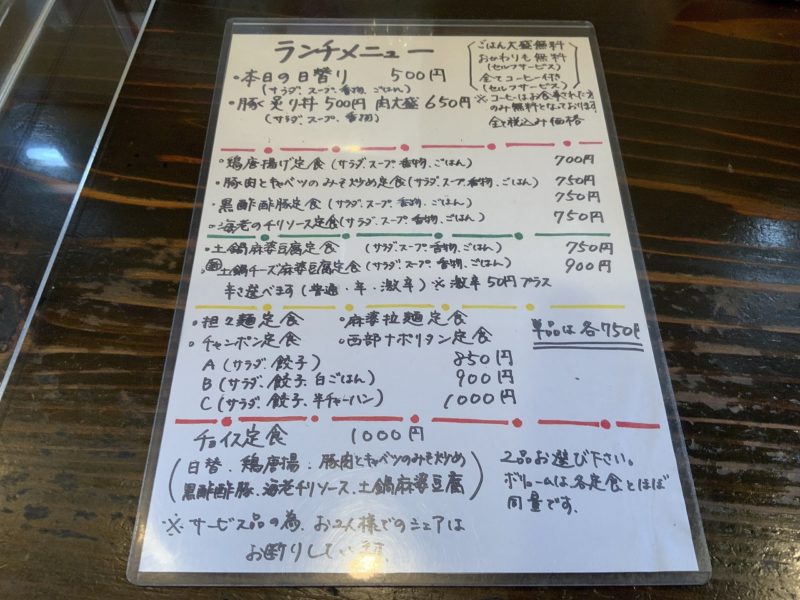 ランチメニュー
ごはん大盛無料
おかわりも無料
(セルフサービス)
全てコーヒー付き
(セルフサービス)
※コーヒーはお食事された方
のみ無料となっております。
全て税込み価格
・本日の日替り 500円
(サラダ、スープ、香物、ごはん)
・豚炙り丼 500円 肉大盛 650円
(サラダ、スープ、香物)
・鶏唐揚げ定食(サラダ、スープ、香物、ごはん) 700円
・豚肉とキャベツのみそ炒め定食(サラダ、スープ、香物、ごはん) 750円
・黒酢酢豚定食(サラダ、スープ、香物、ごはん) 750円
・海老のチリソース定食(サラダ、スープ、香物、ごはん) 750円
・土鍋麻婆豆腐定食 (サラダ、スープ、香物、ごはん) 750円
土鍋チーズ麻婆豆腐定食(サラダ、スープ、香物、ごはん) 900円
辛さ選べます(普通・辛・激辛)※激辛50円プラス
・担々麺定食 ・麻婆拉麺定食
・チャンポン定食 ・西部ナポリタン定食
単品は各750円
A(サラダ、餃子) 850円
B(サラダ、餃子、白ごはん) 900円
C(サラダ、餃子、半チャーハン) 1000円
チョイス定食 1000円
(日替、鶏唐揚、豚肉とキャベツのみそ炒め
黒酢酢豚、海老チリソース、土鍋麻婆豆腐)
2品お選び下さい。
ボリュームは、各定食とほぼ
同量です。
※サービス品の為、お2人様でのシェアは
お断りしています。